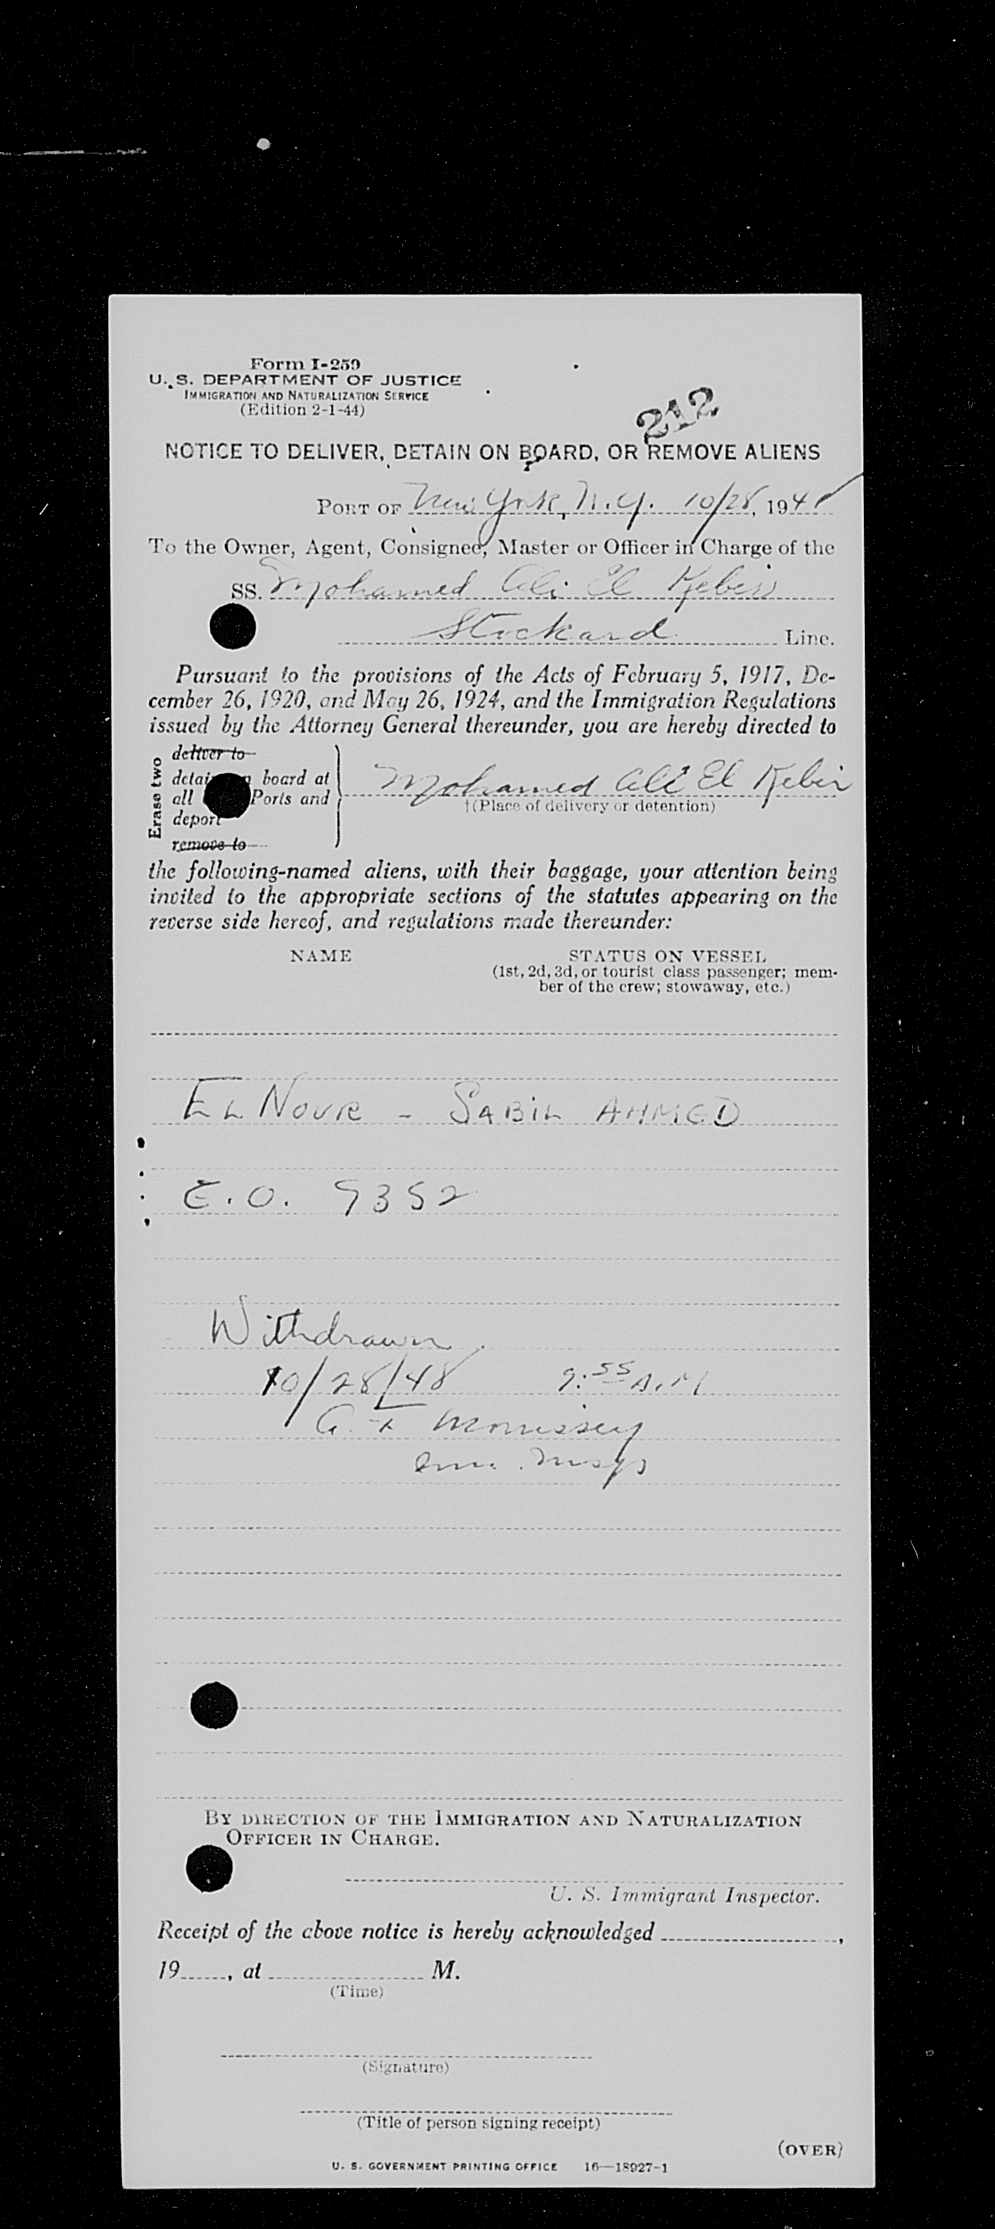 Form I-259
U. S. DEPARTMENT OF JUSTICE
IMMIGRATION AND NATURALIZATION SERVICE
(Edition 2-1-44)
212
NOTICE TO DELIVER, DETAIN ON BOARD, OR REMOVE ALIENS
PORT OF New York, N.Y. 10/28, 1948
To the Owner, Agent, Consignee, Master or Officer in Charge of the
SS. Mohamed Ali El Kebir
Stockard Line.
Pursuant to the provisions of the Acts of February 5, 1917, De-
cember 26, 1920, and May 26, 1924, and the Immigration Regulations
issued by the Attorney General thereunder, you are hereby directed to
Erase two
deliver to
detain on board at
all Ports and
deport
remove to
Mohamed Ali El Kebir
†(Place of delivery or detention)
the following-named aliens, with their baggage, your attention being
invited to the appropriate sections of the statutes appearing on the
reverse side hereof, and regulations made thereunder:
NAME STATUS ON VESSEL
(1st, 2d, 3d, or tourist class passenger; mem-
ber of the crew; stowaway, etc.)
EL NOUR - SABIL AHMED
E.O. 9352
Withdrawn
10/28/48 9:55 A.M
Morrissey
BY DIRECTION OF THE IMMIGRATION AND NATURALIZATION
OFFICER IN CHARGE.
U. S. Immigrant Inspector.
Receipt of the above notice is hereby acknowledged ,
19 , at M.
(Time)
(Signature)
(Title of person signing receipt)
(OVER)
U. S. GOVERNMENT PRINTING OFFICE 16—18927-1